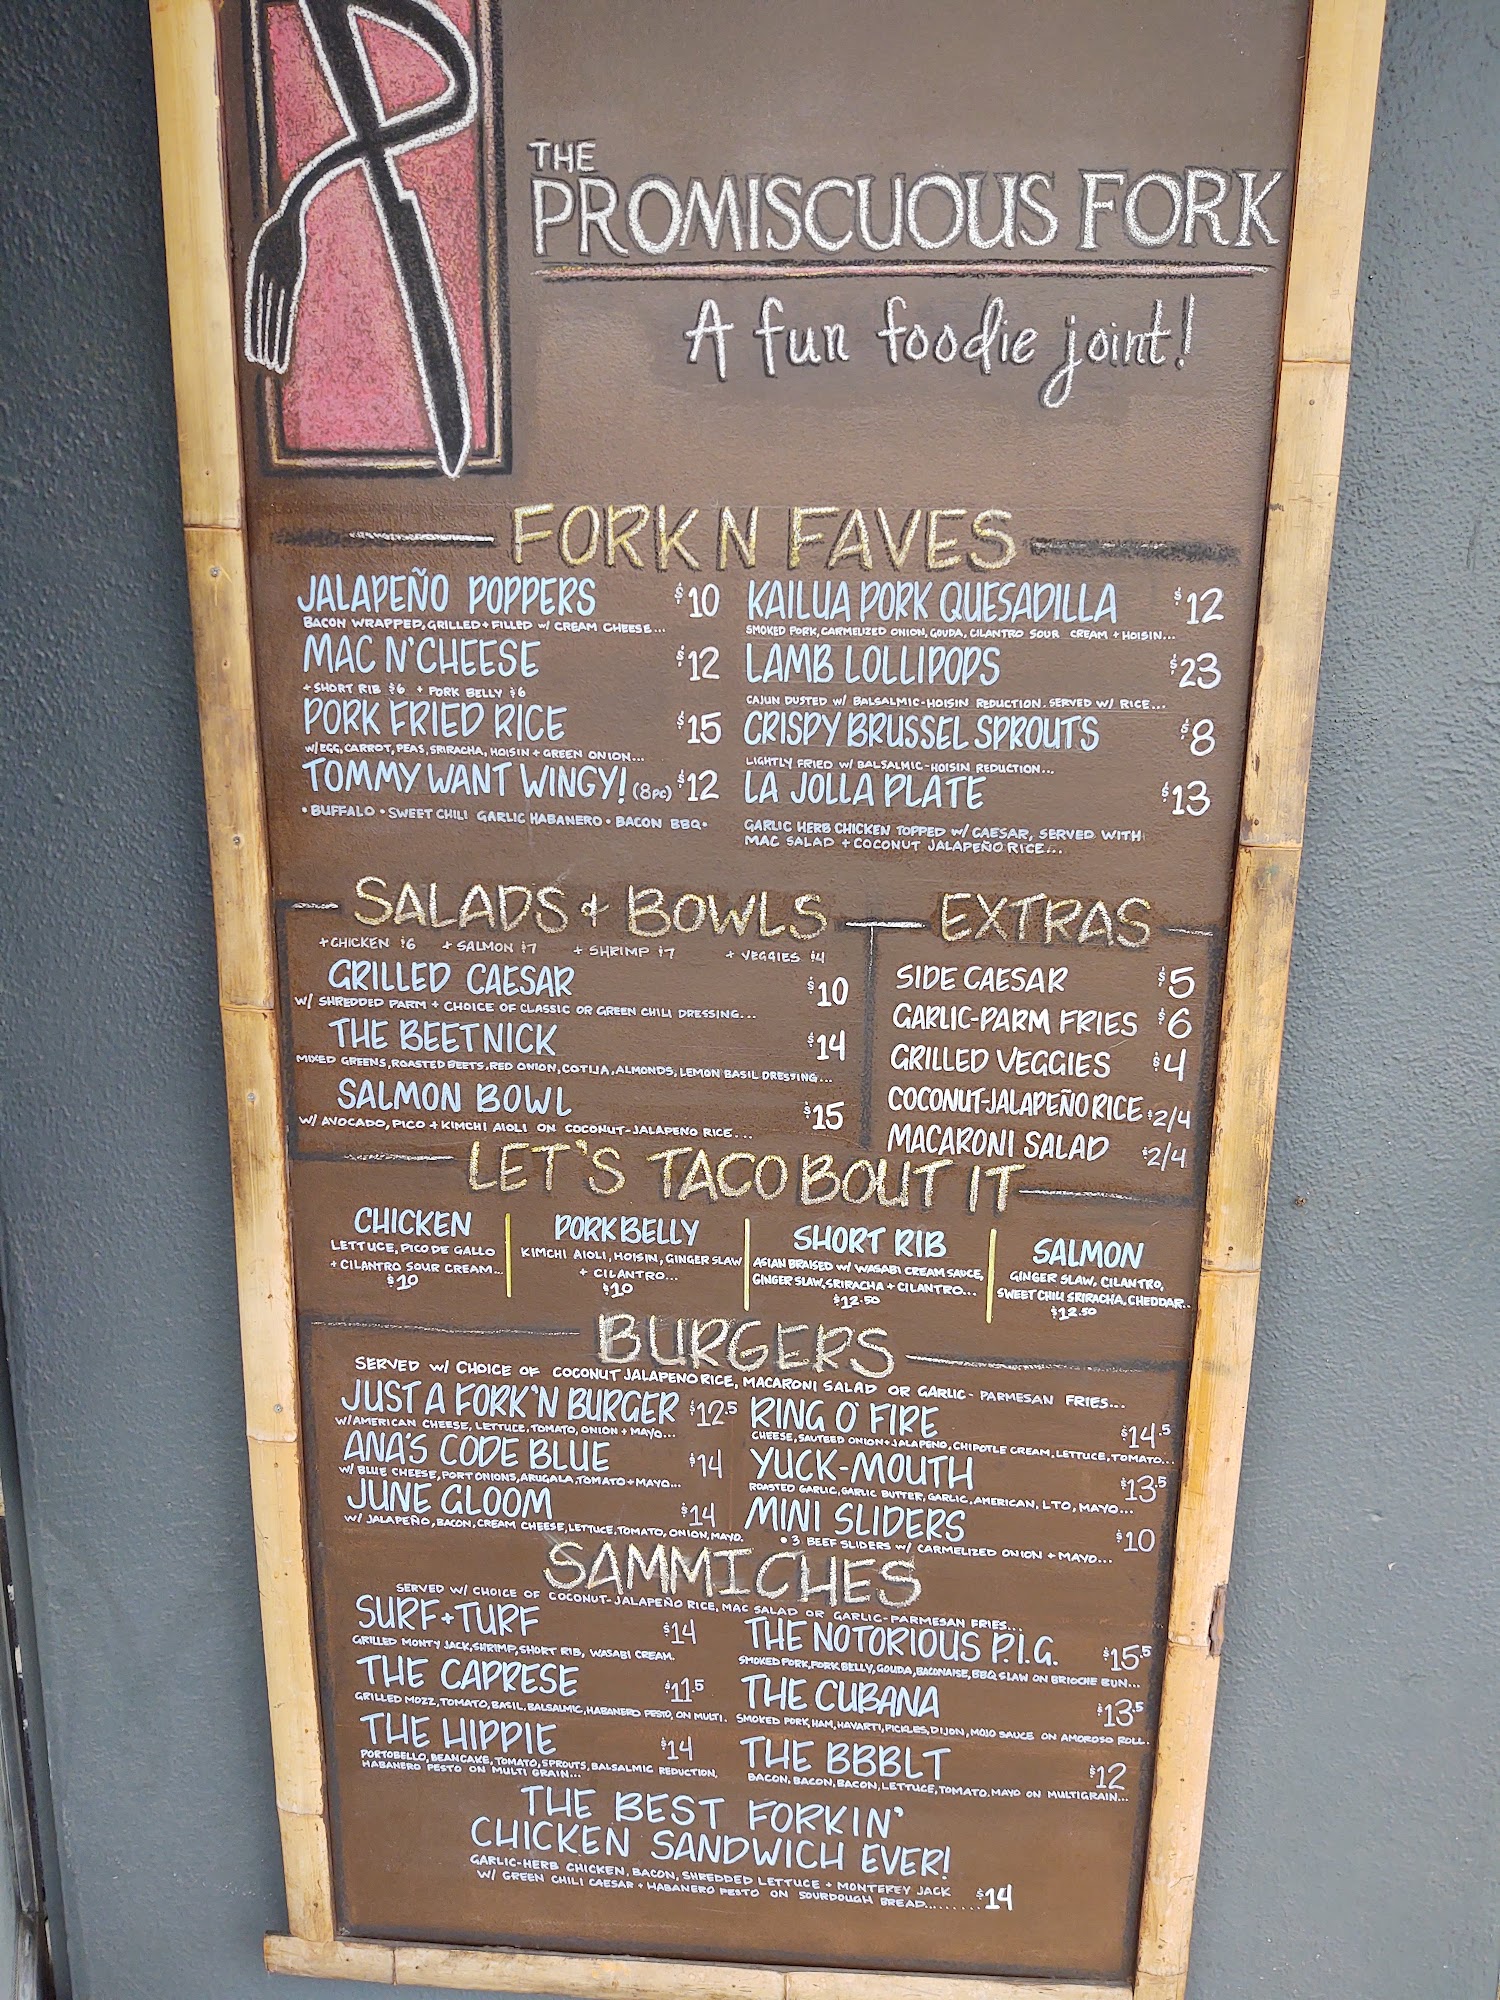 THE
PROMISCUOUS FORK
A fun foodie joint!
FORK N FAVES
JALAPEÑO POPPERS $10
BACON WRAPPED, GRILLED + FILLED w/ CREAM CHEESE...
MAC N' CHEESE $12
+ SHORT RIB $6 + PORK BELLY $6
PORK FRIED RICE $15
W/EGG, CARROT, PEAS, SRIRACHA, HOISIN + GREEN ONION...
TOMMY WANT WINGY! (8pc) $12
• BUFFALO • SWEET CHILI GARLIC HABANERO • BACON BBQ •
KAILUA PORK QUESADILLA $12
SMOKED PORK, CARMELIZED ONION, GOUDA, CILANTRO SOUR CREAM + HOISIN...
LAMB LOLLIPOPS $23
CAJUN DUSTED W/ BALSALMIC-HOISIN REDUCTION. SERVED W/ RICE...
CRISPY BRUSSEL SPROUTS $8
LIGHTLY FRIED W/ BALSALMIC-HOISIN REDUCTION...
LA JOLLA PLATE $13
GARLIC HERB CHICKEN TOPPED W/ CAESAR, SERVED WITH
MAC SALAD + COCONUT JALAPEÑO RICE...
SALADS + BOWLS
+ CHICKEN $6 + SALMON $7 + SHRIMP $7 + VEGGIES $4
GRILLED CAESAR $10
W/ SHREDDED PARM + CHOICE OF CLASSIC OR GREEN CHILI DRESSING...
THE BEETNICK $14
MIXED GREENS, ROASTED BEETS, RED ONION, COTIJA, ALMONDS, LEMON BASIL DRESSING...
SALMON BOWL $15
W/ AVOCADO, PICO + KIMCHI AIOLI ON COCONUT-JALAPENO RICE...
EXTRAS
SIDE CAESAR $5
GARLIC-PARM FRIES $6
GRILLED VEGGIES $4
COCONUT-JALAPEÑO RICE $2/4
MACARONI SALAD $2/4
LET'S TACO BOUT IT
CHICKEN
LETTUCE, PICO DE GALLO
+ CILANTRO SOUR CREAM...
$10
PORK BELLY
KIMCHI AIOLI, HOISIN, GINGER SLAW
+ CILANTRO...
$10
SHORT RIB
ASIAN BRAISED W/ WASABI CREAM SAUCE,
GINGER SLAW, SRIRACHA + CILANTRO...
$12.50
SALMON
GINGER SLAW, CILANTRO,
SWEET CHILI SRIRACHA, CHEDDAR..
$12.50
BURGERS
SERVED W/ CHOICE OF COCONUT JALAPENO RICE, MACARONI SALAD OR GARLIC-PARMESAN FRIES...
JUST A FORK'N BURGER $12.5
W/AMERICAN CHEESE, LETTUCE, TOMATO, ONION + MAYO...
ANA'S CODE BLUE $14
W/ BLUE CHEESE, PORT ONIONS, ARUGALA, TOMATO + MAYO...
JUNE GLOOM $14
W/ JALAPEÑO, BACON, CREAM CHEESE, LETTUCE, TOMATO, ONION, MAYO.
RING O' FIRE $14.5
CHEESE, SAUTEED ONION + JALAPENO, CHIPOTLE CREAM, LETTUCE, TOMATO...
YUCK-MOUTH $13.5
ROASTED GARLIC, GARLIC BUTTER, GARLIC, AMERICAN, LTO, MAYO...
MINI SLIDERS $10
• 3 BEEF SLIDERS W/ CARMELIZED ONION + MAYO...
SAMMICHES
SERVED W/ CHOICE OF COCONUT-JALAPEÑO RICE, MAC SALAD OR GARLIC-PARMESAN FRIES...
SURF + TURF $14
GRILLED MONTY JACK, SHRIMP, SHORT RIB, WASABI CREAM.
THE CAPRESE $11.5
GRILLED MOZZ, TOMATO, BASIL, BALSALMIC, HABANERO PESTO, ON MULTI.
THE HIPPIE $14
PORTOBELLO, BEANCAKE, TOMATO, SPROUTS, BALSALMIC REDUCTION,
HABANERO PESTO ON MULTI GRAIN...
THE NOTORIOUS P.I.G. $15.5
SMOKED PORK, PORK BELLY, GOUDA, BACONAISE, BBQ SLAW ON BRIOCHE BUN...
THE CUBANA $13.5
SMOKED PORK, HAM, HAVARTI, PICKLES, DIJON, MOJO SAUCE ON AMOROSO ROLL.
THE BBBLT $12
BACON, BACON, BACON, LETTUCE, TOMATO, MAYO ON MULTIGRAIN...
THE BEST FORKIN'
CHICKEN SANDWICH EVER!
GARLIC-HERB CHICKEN, BACON, SHREDDED LETTUCE + MONTEREY JACK
W/ GREEN CHILI CAESAR + HABANERO PESTO ON SOURDOUGH BREAD........ $14